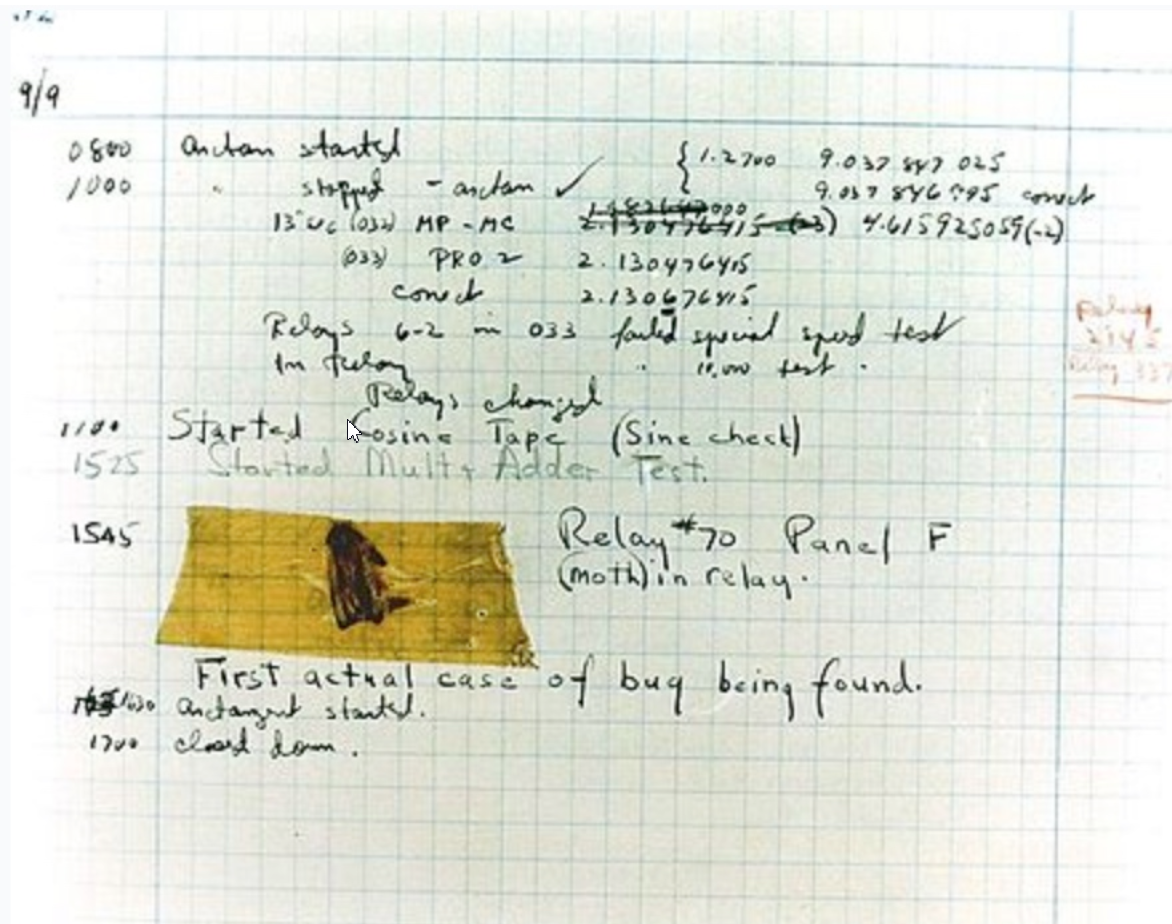 9/9
0800 Antan started { 1.2700 9.037 847 025
1000 " stopped - antan ✓ 9.037 846 995 correct
13"uc (032) MP - MC 2.130476415 (-3) 4.615925059(-2)
(033) PRO 2 2.130476415
correct 2.130676415
Relays 6-2 in 033 failed special speed test
In Relay " 10,000 test .
Relays changed
1100 Started Cosine Tape (Sine check)
1525 Started Mult + Adder Test.
1545 Relay #70 Panel F
(moth) in relay.
First actual case of bug being found.
1630 Antangent started.
1700 closed down.
Relay
2145
Relay 337